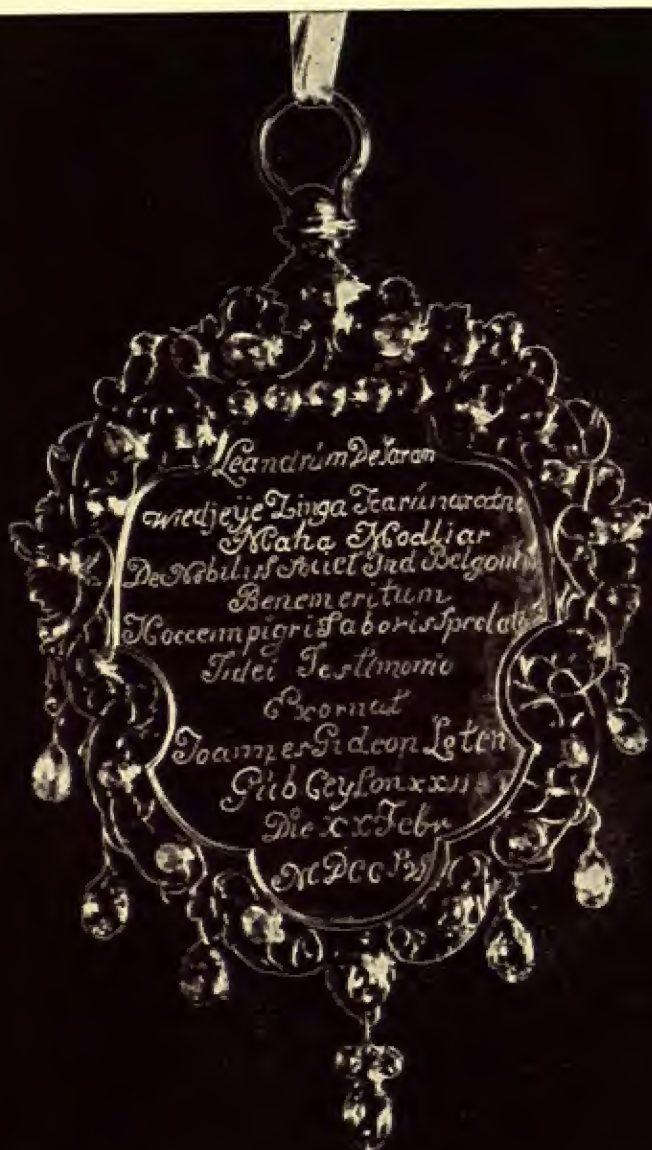 Leandrum De Saram
Wiedjeije Zinga Karunaratne
Maha Modliar
De Nobilis Societ Ind Belgout
Benemeritum
Hoccempigri Laboris Spectat
Fidei Testimonio
Exornat
Joannes Gideon Loten
Gub Ceylon
Die XX Febr